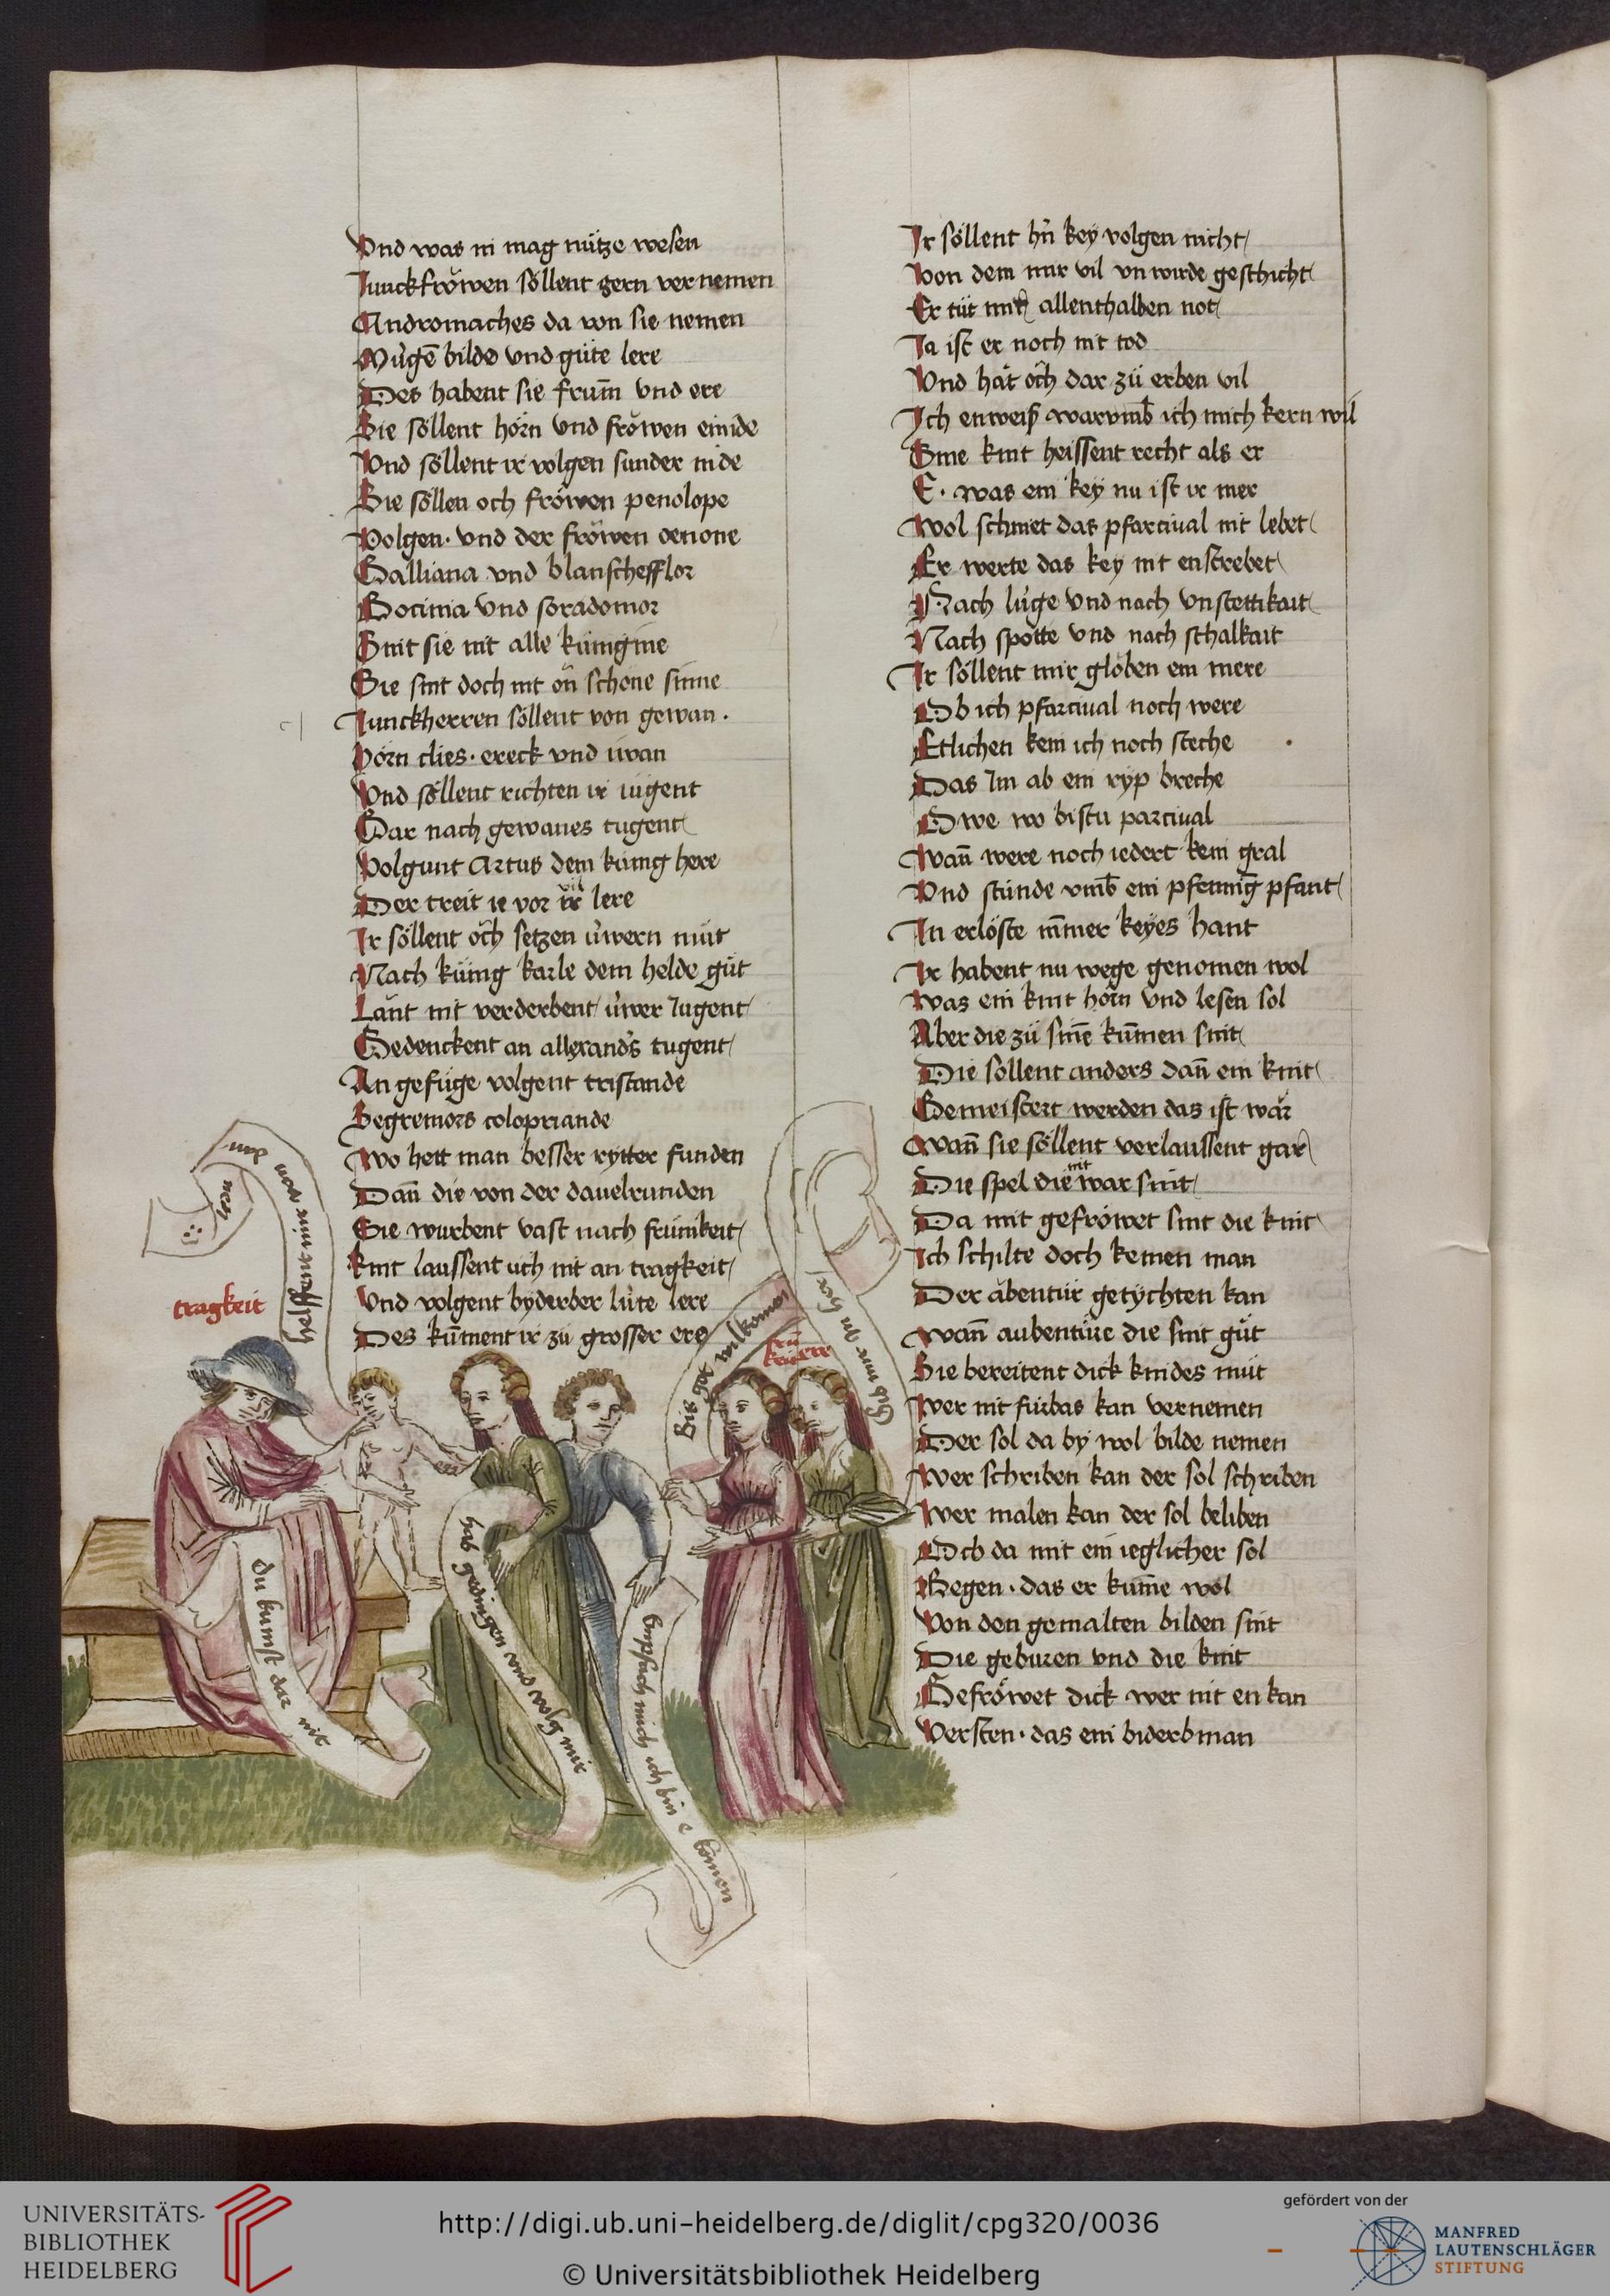 Vnd was in mag nütze wesen
Junckfröwen söllent gern vernemen
Andromaches da von sie nemen
Mügē bilde vnd güte lere
Des habent sie frum̄ vnd ere
Sie söllent hörn vnd fröwen einide
Vnd söllent ir volgen sunder nide
Sie söllen och fröwen penolope
Volgen · vnd der fröwen oenone
Galliana vnd blanschefflor
Socinia vnd soradomor
Sint sie nit alle künigine
Sie sint doch nit on̄ schöne sinne
Junckherren söllent von gewan ·
Hörn clies · ereck vnd iwan
Vnd söllent richten ir iugent
Gar nach gewanes tugent
Volgunt Artus dem künig here
Der treit ie vor vil lere
Ir söllent öch setzen üwern müt
Nach künig karle dem helde güt
Lant nit verderbent üwer Jugent
Gedenckent an allerands tugent
An gefüge volgent tristande
Segremors colopriande
Wo hett man besser rytter funden
Dan̄ die von der dauelrunden
Sie wurbent vast nach frümkeit
kint laussent uch nit an tragkeit
Vnd volgent byderber lüte lere
Des kum̄ent ir zü grosser ere
helffent mir von dan
nen
tragkeit
du kumst dar nit
hab gedingen vnd volg mir
Empfach mich ich bin komen
Bis got wilkomen
Gib mir in her
Ir söllent hn̄ key volgen nicht
Von dem mir vil vn wirde geschicht
Er tüt mir allenthalben not
Ja ist er noch nit tod
Vnd hat öch dar zü erben vil
Ich enweiß warvmb ich mich kern wil
Sine kint heissent recht als er
E · was ein key nu ist ir mer
Wol schinet das pfarcival nit lebet
Er werte das key nit enstrebet
Nach lüge vnd nach vnstettikait
Nach spotte vnd nach schalkait
Ir söllent mir glöben ein mere
Ob ich pfarcival noch were
Etlichen kein ich noch steche
Das Im ab ein ryp breche
Owe wo bistu parcival
Wan̄ were noch iedert kein gral
Vnd stünde vmb ein pfennig pfant
In erlöste nimmer keyes hant
Ir habent nu wege genomen wol
Was ein kint hörn vnd lesen sol
Aber die zü sin̄e kum̄en sint
Die söllent anders dan̄ ein kint
Gemeistert werden das ist war
Wan̄ sie söllent verlaussent gar
Die spel die nit war sint
Da mit gefröwet sint die kint
Ich schilte doch keinen man
Der abentür getychten kan
Wan̄ aubentüre die sint güt
Sie bereitent dick kindes müt
Wer nit fürbas kan vernemen
Der sol da by wol bilde nemen
Wer schriben kan der sol schriben
Wer malen kan der sol beliben
Och da mit ein ieglicher sol
Segen · das er kum̄e wol
Von den gemalten bilden sint
Die geburen vnd die kint
Gefröwet dick wer nit en kan
Versten · das ein biderb man
UNIVERSITÄTS-
BIBLIOTHEK
HEIDELBERG
http://digi.ub.uni-heidelberg.de/diglit/cpg320/0036
© Universitätsbibliothek Heidelberg
gefördert von der
MANFRED
LAUTENSCHLÄGER
STIFTUNG